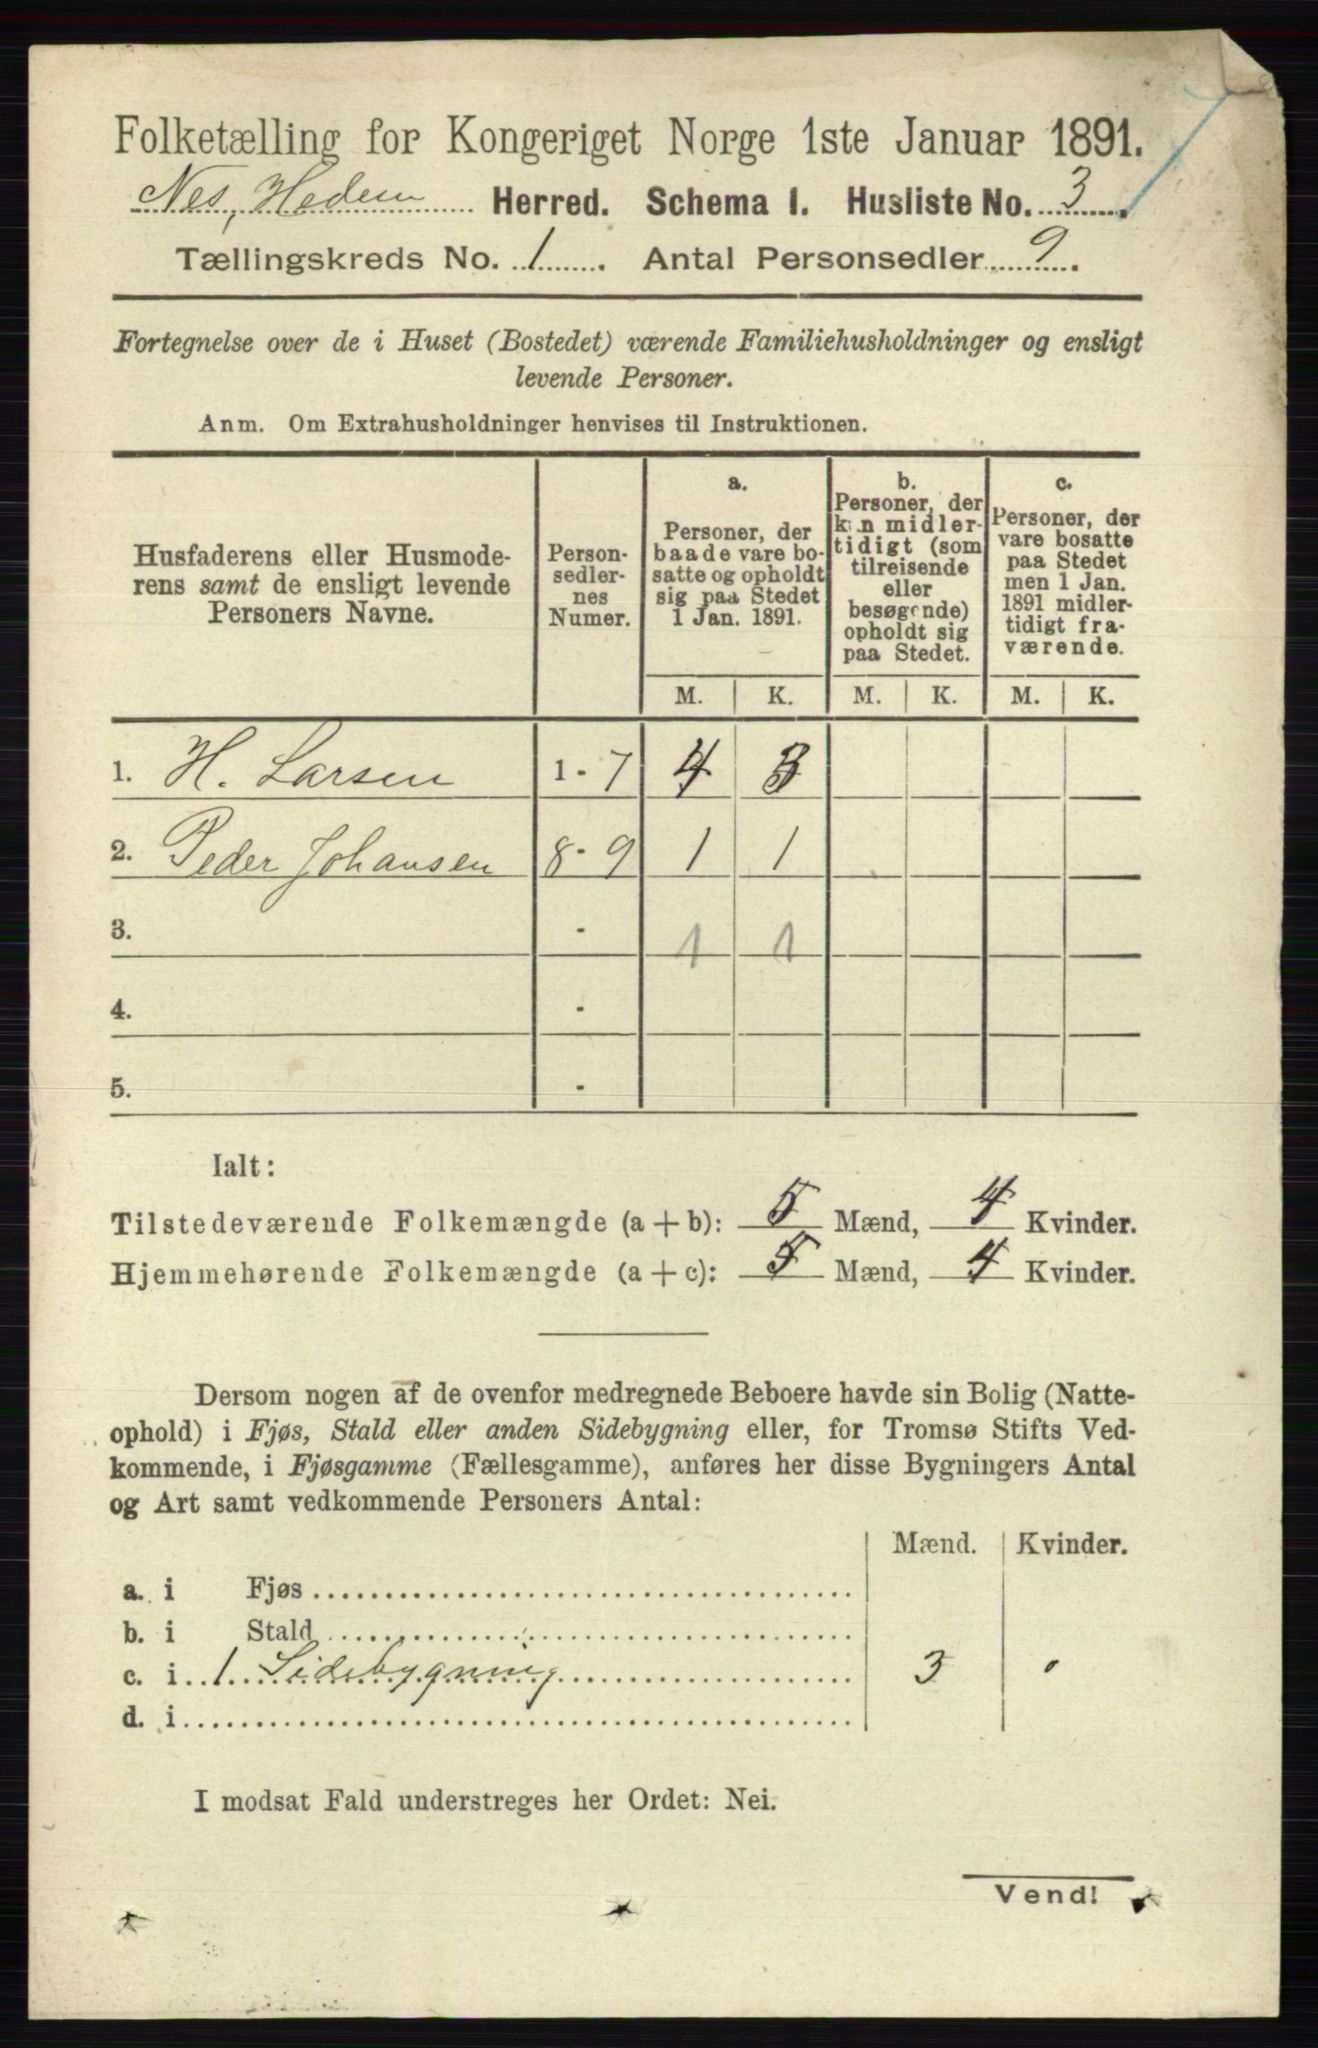 Folketælling for Kongeriget Norge 1ste Januar 1891.
Nes, Hedem Herred. Schema 1. Husliste No. 3.
Tællingskreds No. 1. Antal Personsedler 9.
Fortegnelse over de i Huset (Bostedet) værende Familiehusholdninger og ensligt
levende Personer.
Anm. Om Extrahusholdninger henvises til Instruktionen.
Husfaderens eller Husmode-
rens samt de ensligt levende
Personers Navne.
Person-
sedler-
nes
Numer.
a.
Personer, der
baade vare bo-
satte og opholdt
sig paa Stedet
1 Jan. 1891.
b.
Personer, der
kun midler-
tidigt (som
tilreisende
eller
besøgende)
opholdt sig
paa Stedet.
c.
Personer, der
vare bosatte
paa Stedet
men 1 Jan.
1891 midler-
tidigt fra-
værende.
M. K. M. K. M. K.
1. H. Larsen 1 - 7 4 3
2. Peder Johansen 8 - 9 1 1
3. - 1 1
4. -
5. -
Ialt:
Tilstedeværende Folkemængde (a + b): 5 Mænd, 4 Kvinder.
Hjemmehørende Folkemængde (a + c): 5 Mænd, 4 Kvinder.
Dersom nogen af de ovenfor medregnede Beboere havde sin Bolig (Natte-
ophold) i Fjøs, Stald eller anden Sidebygning eller, for Tromsø Stifts Ved-
kommende, i Fjøsgamme (Fællesgamme), anføres her disse Bygningers Antal
og Art samt vedkommende Personers Antal:
Mænd. Kvinder.
a. i Fjøs
b. i Stald
c. i 1 Sidebygning 3 "
d. i
I modsat Fald understreges her Ordet: Nei.
Vend!